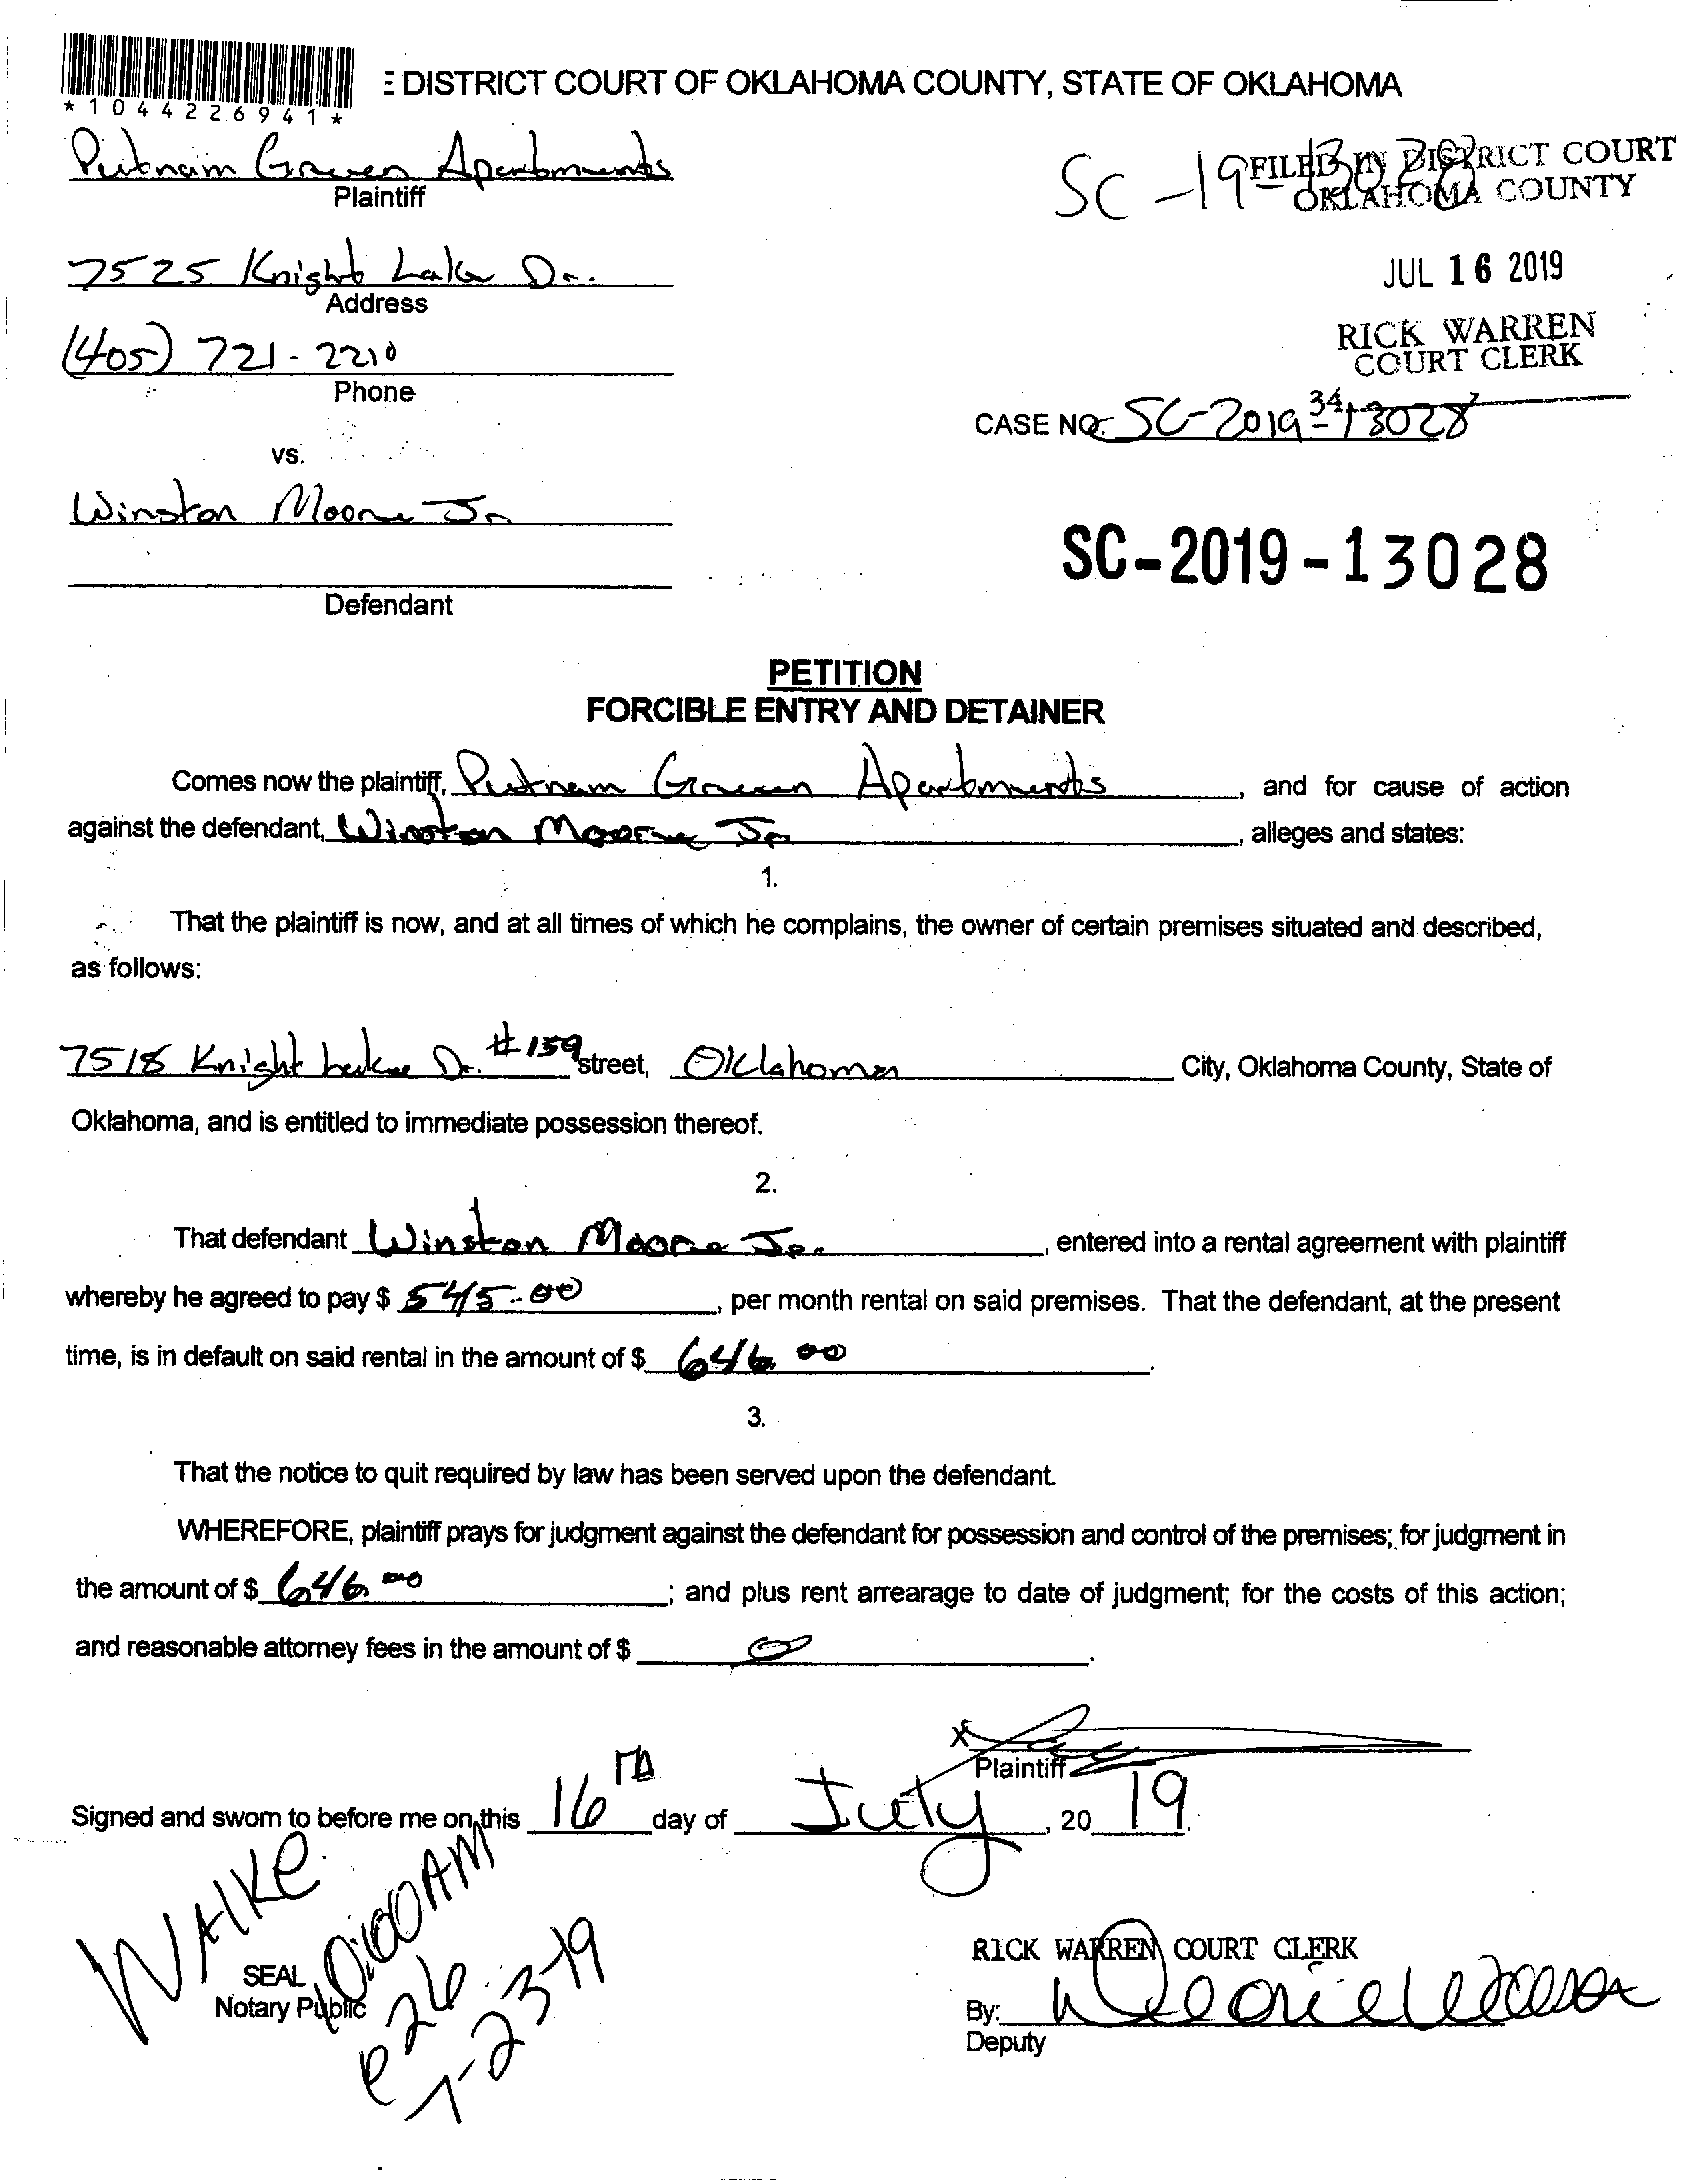 *1044226941*
E DISTRICT COURT OF OKLAHOMA COUNTY, STATE OF OKLAHOMA
Putnam Green Apartments
Plaintiff
SC-19-13028
FILED IN DISTRICT COURT
OKLAHOMA COUNTY
7525 Knight Lake Dr.
Address
JUL 16 2019
(405) 721-2210
Phone
RICK WARREN
COURT CLERK
34
CASE NO. SC-2019-13028
vs.
Winston Moore Jr
SC-2019-13028
Defendant
PETITION
FORCIBLE ENTRY AND DETAINER
Comes now the plaintiff, Putnam Green Apartments, and for cause of action
against the defendant, Winston Moore Jr, alleges and states:
1.
That the plaintiff is now, and at all times of which he complains, the owner of certain premises situated and described,
as follows:
7518 Knight Lake Dr. #159 street, Oklahoma City, Oklahoma County, State of
Oklahoma, and is entitled to immediate possession thereof.
2.
That defendant Winston Moore Jr., entered into a rental agreement with plaintiff
whereby he agreed to pay $ 545.00, per month rental on said premises. That the defendant, at the present
time, is in default on said rental in the amount of $ 646.00.
3.
That the notice to quit required by law has been served upon the defendant.
WHEREFORE, plaintiff prays for judgment against the defendant for possession and control of the premises; for judgment in
the amount of $ 646.00; and plus rent arrearage to date of judgment; for the costs of this action;
and reasonable attorney fees in the amount of $ 0.
X
Plaintiff
Signed and sworn to before me on this 16th day of July, 2019.
WALKE
10:00 AM
SEAL
Notary Public
7-23-19
RICK WARREN COURT CLERK
By:
Deputy